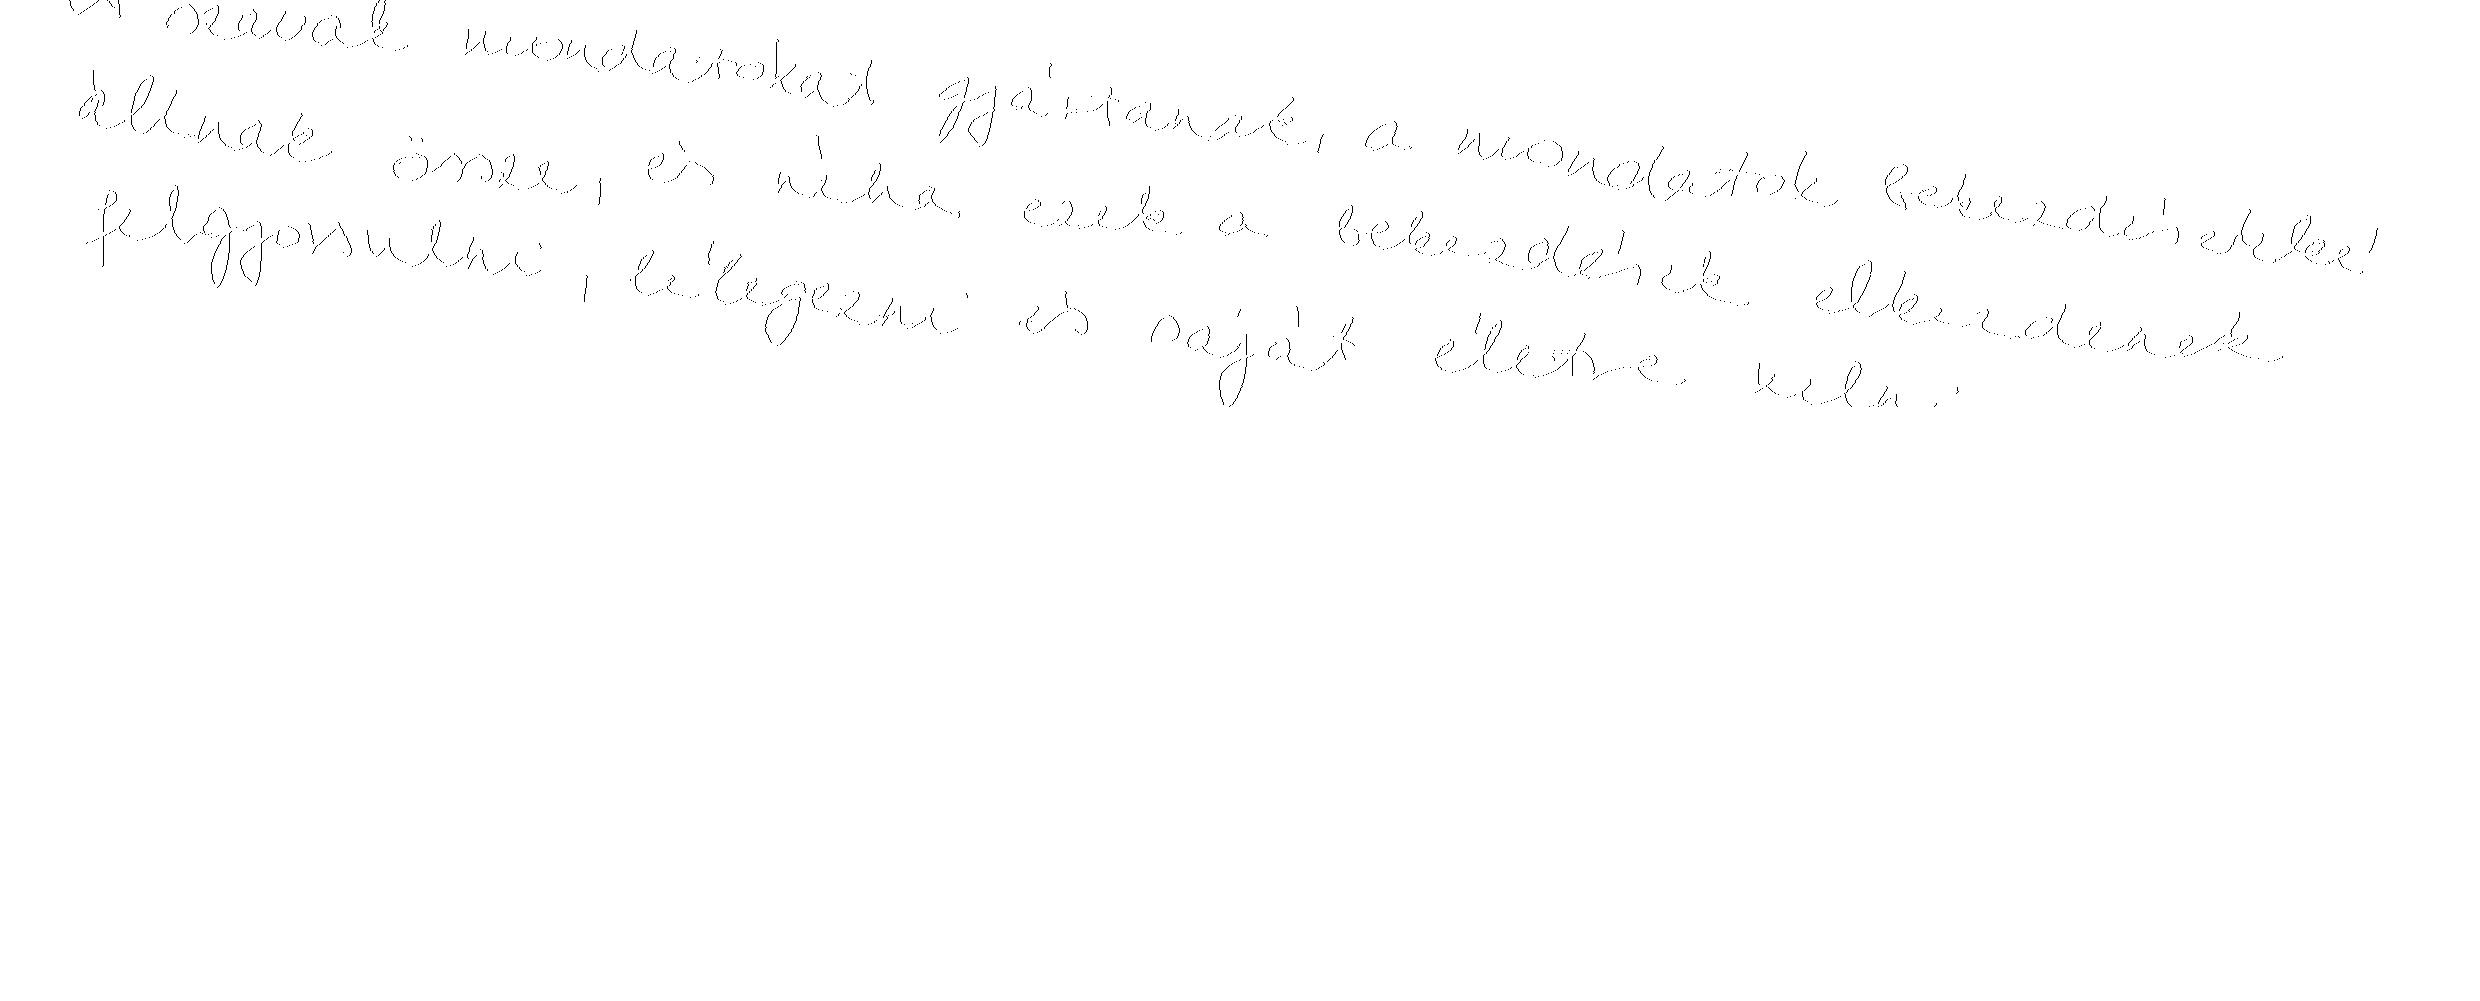 A szavak mondatokat gyártanak, a mondatok bekezdésekké
állnak össze, és néha ezek a bekezdések elkezdenek
felgyorsulni, lélegezni és saját életre kelni.